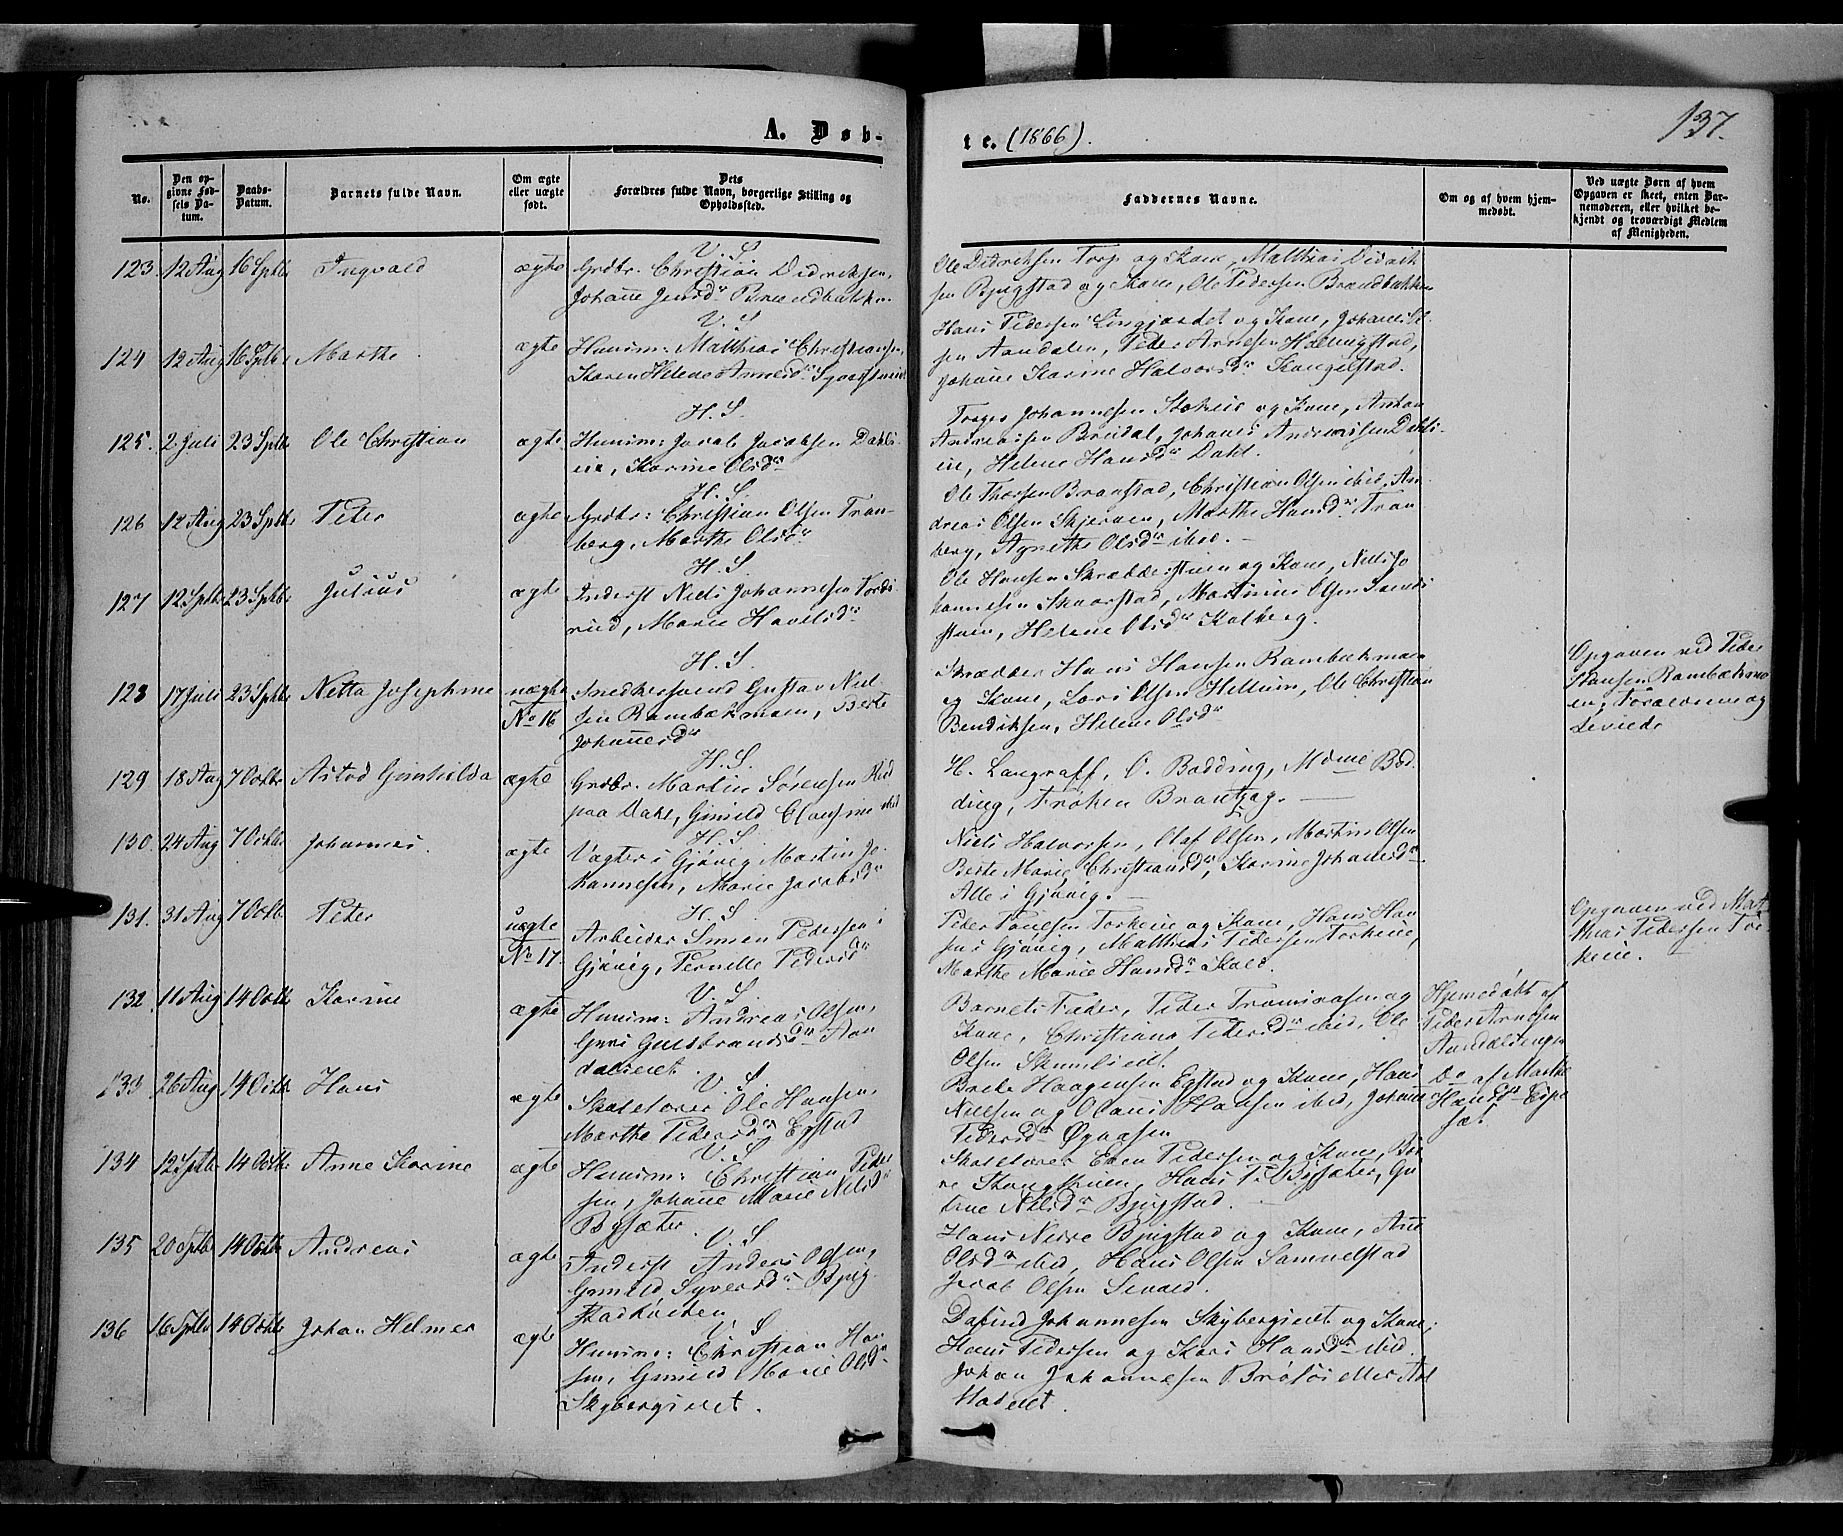 137.
A. Døb-
te. (1866).
No.
Den op-
givne Fød-
sels Da-
tum.
Daabs-
Datum.
Barnets fulde Navn.
Om ægte
eller uægte
født.
Dets
Forældres fulde Navn, borgerlige Stilling og
Opholdssted.
Faddernes Navne.
Om og af hvem hjem-
medøbt.
Ved uægte Børn af hvem
Opgaven er skeet, enten Bar-
nemoderen, eller hvilket be-
kjendt og troværdigt Medlem
af Menigheden.
V. S
123. 12 Aug 16 Sptbr Ingvald ægte Grdbr. Christian Didriksen,
Johanne Jensdr Brændbakken
Ole Didriksen Torp og Kone, Matthias Didrik
sen Bjugstad og Kone, Ole Pedersen Brændbakken
V. S.
124 12 Aug 16 Sptbr Marthe ægte Husm: Matthias Christiansen,
Karen Helene Arnesdr
Hans Pedersen og Kone, Johannes Ol
sen Aandalen, Peder Arnesen
Johanne Karine Halvorsdr
H. S.
125. 2 Juli 23 Sptbr Ole Christian ægte Husm: Jacob Jacobsen Dahls
eie, Karine Olsdr
Johannesen og Kone, Anton
Andreassen Bredal, Johannes Andreassen Dahls
eie, Helene Hansdr Dahl.
H. S.
126 12 Aug 23 Sptbr Peter ægte Grdbr: Christian Olsen Tran-
berg, Marthe Olsdr
Ole Thorsen Branstad, Christian Olsen ibid, An
dreas Olsen Skjerven, Marthe Hansdr Tran
berg, Agnethe Olsdr ibid. -
H. S
127 12 Sptbr 23 Sptbr Julius ægte Inderst Niels Johannesen Tords
rud, Marie Havelsdr
Ole Hansen Skrædderstuen og Kone, Niels Jo
hannesen Skaarstad, Martinius Olsen
stuen, Helene Olsdr Kalberg.
H. S.
128 17 Juli 23 Sptbr Netta Josephine uægte Snedkersvend Gustav Niel
No 16 sen Rambækmoen, Berte
Johannesdr
Skrædder Hans Hansen Rambækmoen
og Kone, Lars Olsen Hellum, Ole Christian
Bendiksen, Helene Olsdr
Opgaven ved Peder
Hansen Rambækmo
en, Forældrene og
H. S.
129 18 Aug 7 Octbr Astod Gunhilda ægte Grdbr. Martin Sørensen
paa Dahl, Gunild
H. Langraff, O. Bødding, Mme Bød
ding, Frøken Brantzæg. -
H. S.
130. 24 Aug 7 Octbr Johannes. ægte Vægter i Gjøvig Martin Jo
hannesen, Marie Jacobsdr
Niels Halvorsen, Olaf Olsen, Martin Olsen
Berte Marie Christiansdr, Karine Johansdr
Alle i Gjøvig. -
H. S
131. 31 Aug 7 Octbr Peter uægte Arbeider Simen Pedersen i
No 17. Gjøvig, Pernelle Pedersdr
Peder Torkeie og Kone, Hans Han
sen i Gjøvig, Matthias Pedersen Torkeie,
Marthe Marie Hansdr
Opgaven ved Mat
thias Pedersen Tor
keie.
V. S.
132 11 Aug 14 Octbr Karine ægte Husm: Andreas Olsen,
Guri Gulbrandsdr Aan
dalseiet.
Barnets Fader, Peder og
Kone, Christiane Pedersdr ibid, Ole
Olsen
Hjemedøbt af
Peder Arnesen
Aandalsengen
V. S.
133 26 Aug 14 Octbr Hans ægte Skolelærer Ole Hansen,
Marthe Pedersdr Egstad
Brede Haagensen Egstad og Kone, Hans
Nielsen og Olaus Hansen ibid, Johanne
Pedersdr
Do af Marthe
Hansdr
V. S.
134 12 Sptbr 14 Octbr Anne Karine ægte Husm: Christian Peder
sen, Johanne Marie Nilsdr
Bysæter
Skolelærer Even Pedersen og Kone,
Hans P. Bysæter, Gu
Nilsdr Bjugstad. -
V. S
135 20 Sptbr 14 Octbr Andreas ægte Inderst Anders Olsen,
Gunild Syversdr Bjug
stad
Hans Nedre Bjugstad og Kone, Anne
Olsdr ibid, Hans Olsen
Jacob Olsen
V. S
136 16 Sptbr 14 Octbr Johan Helmer ægte Husm: Christian Han
sen, Gunild Marie Olsdr
Skybergseiet.
Dafind Johannesen Skybergeiet og Kone,
Hans Pedersen og Kari Hansdr ibid
Johan Johannesen